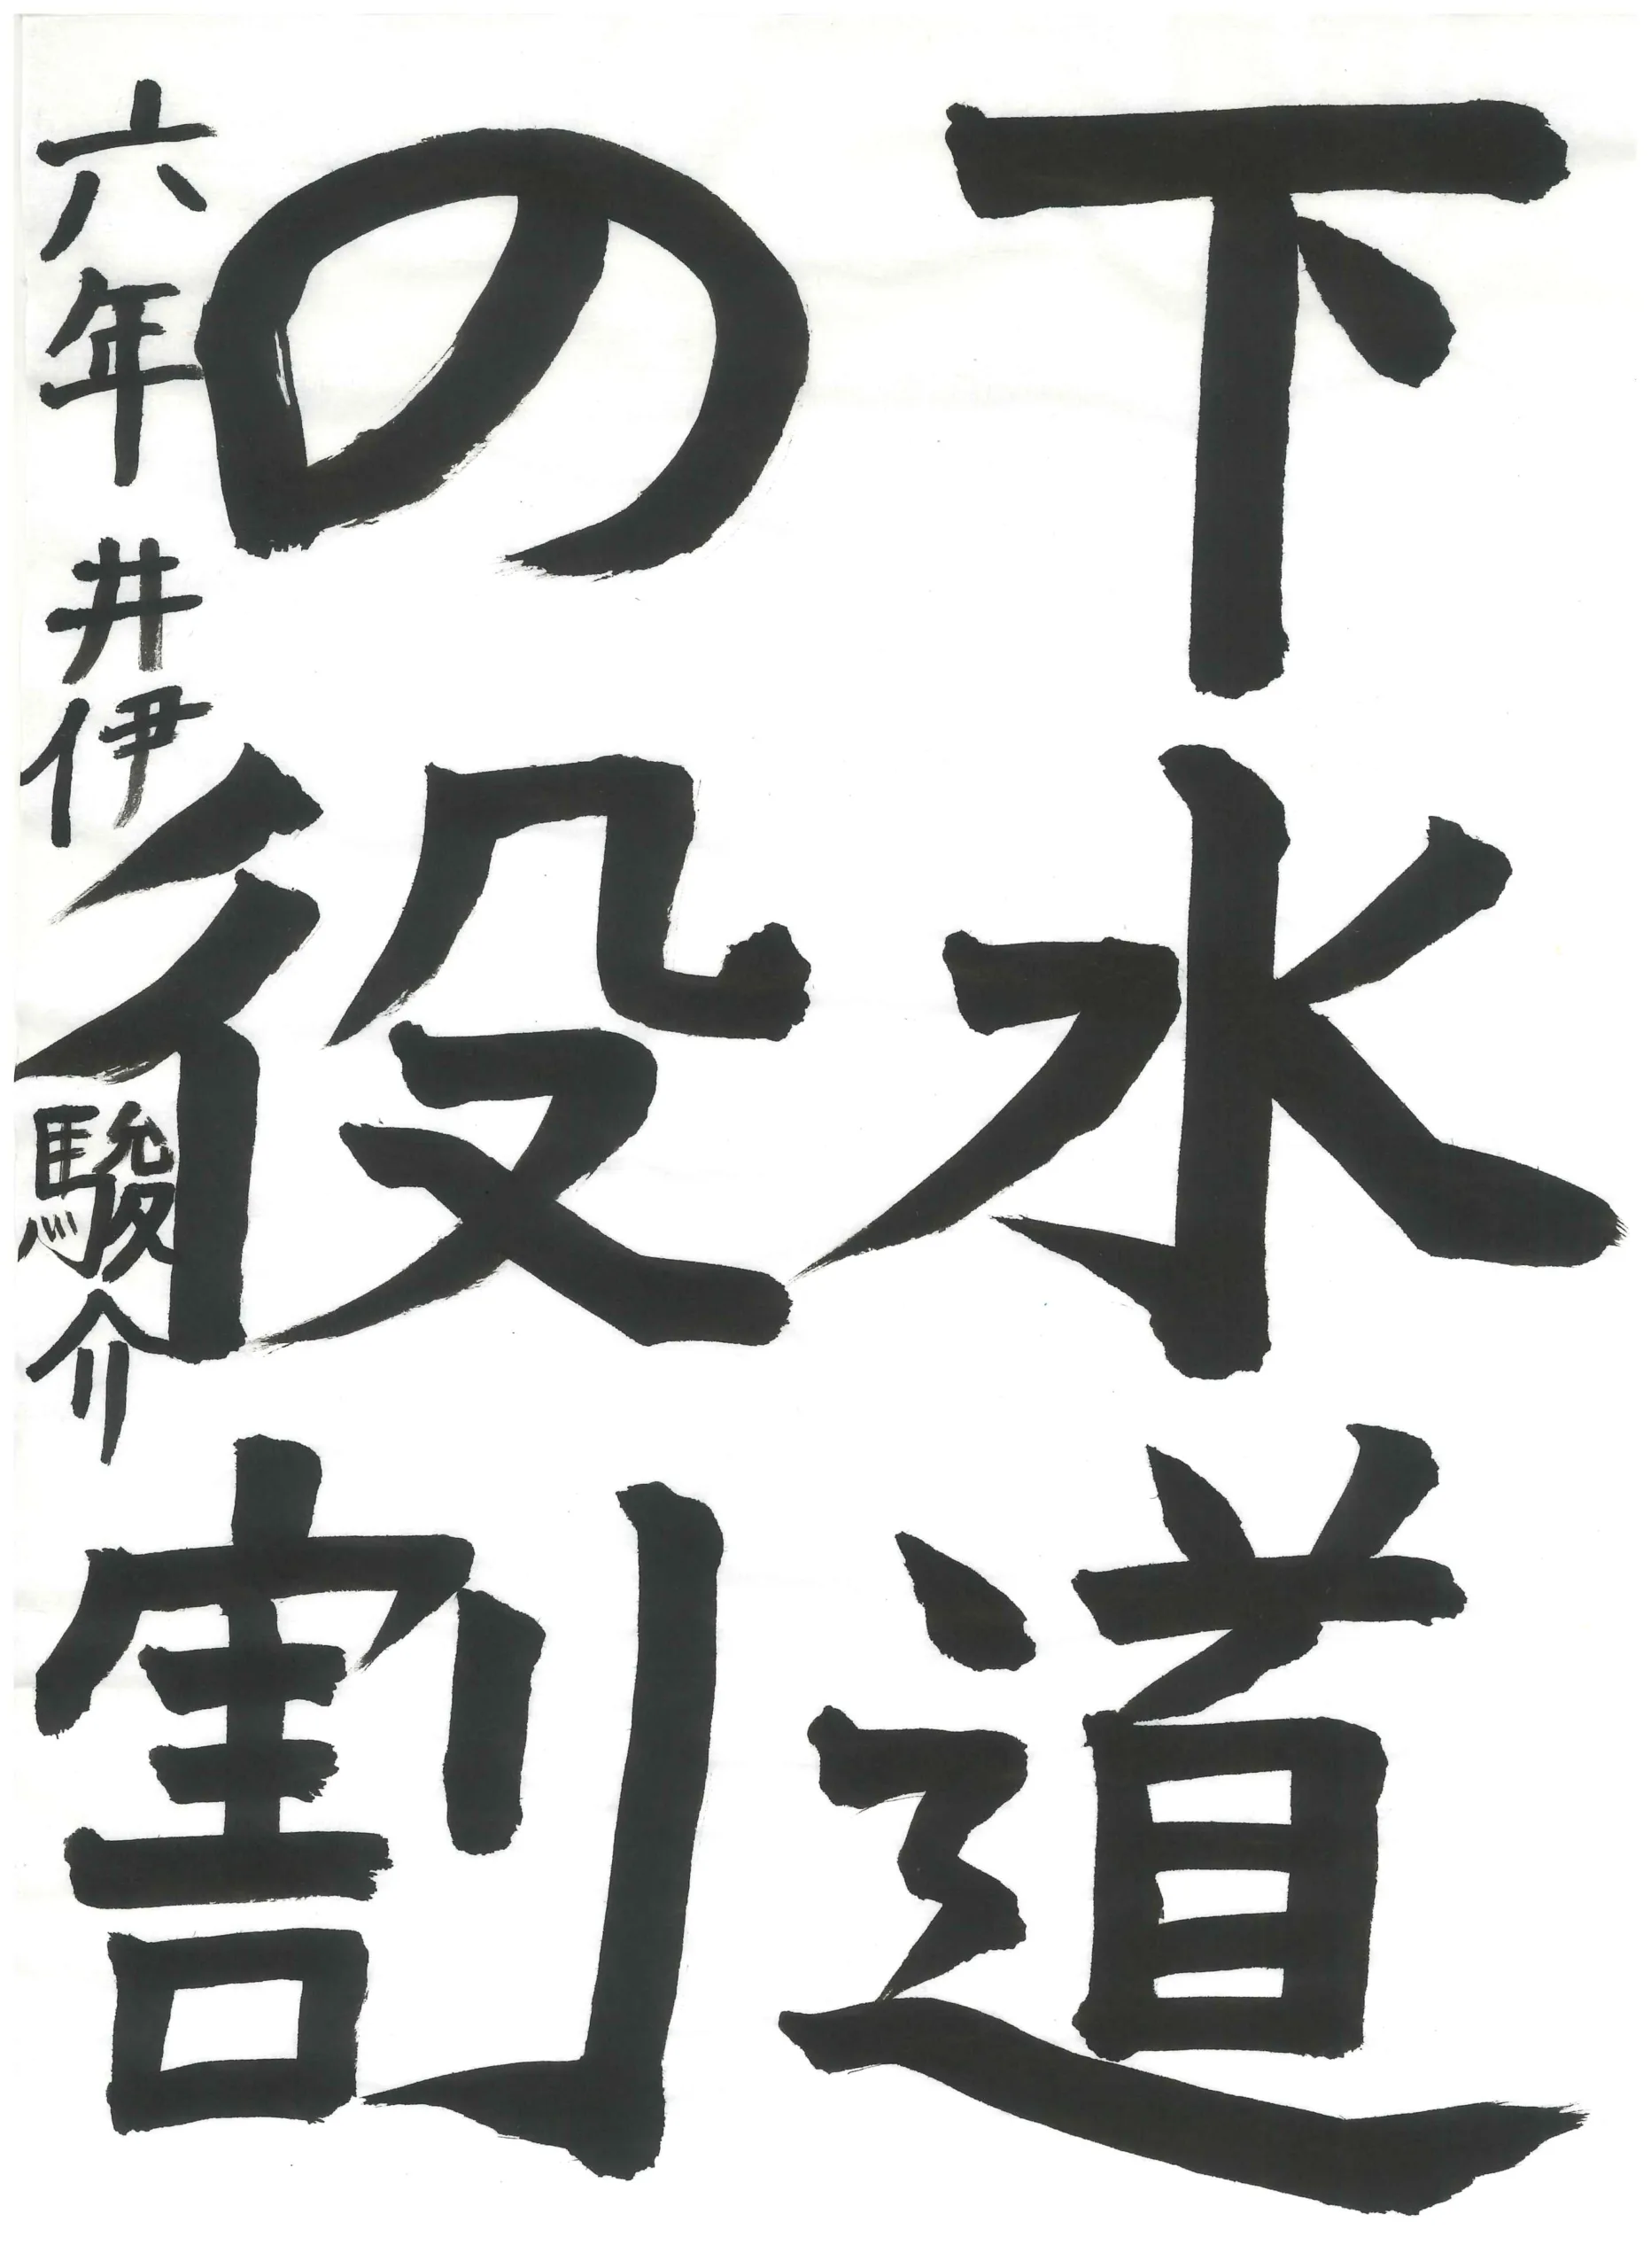 下水道
の役割
六年 井伊 駿介